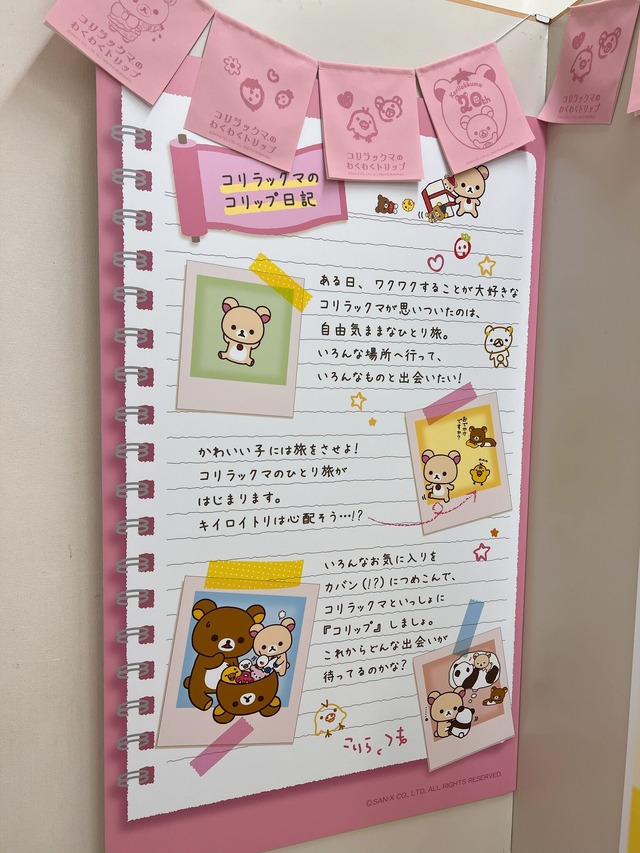 コリラックマの
わくわくトリップ
コリラックマの
わくわくトリップ
コリラックマの
わくわくトリップ
Korilakkuma
20th
コリラックマの
わくわくトリップ
コリラックマの
コリップ日記
ある日、ワクワクすることが大好きな
コリラックマが思いついたのは、
自由気ままなひとり旅。
いろんな場所へ行って、
いろんなものと出会いたい!
かわいい子には旅をさせよ!
コリラックマのひとり旅が
はじまります。
キイロイトリは心配そう…!?
おでかけ
ですか?
いろんなお気に入りを
カバン(!?)につめこんで、
コリラックマといっしょに
『コリップ』しましょ。
これからどんな出会いが
待ってるのかな?
こりらっくま
©SAN-X CO., LTD. ALL RIGHTS RESERVED.